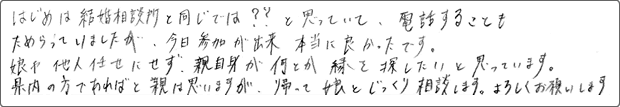 はじめは結婚相談所と同じでは??と思っていて、電話することも
ためらっていましたが、今日参加が出来 本当に良かったです。
娘や他人任せにせず、親自身が何とか縁を探したいと思っています。
県内の方であればと親は思いますが、帰って娘とじっくり相談します。よろしくお願いします